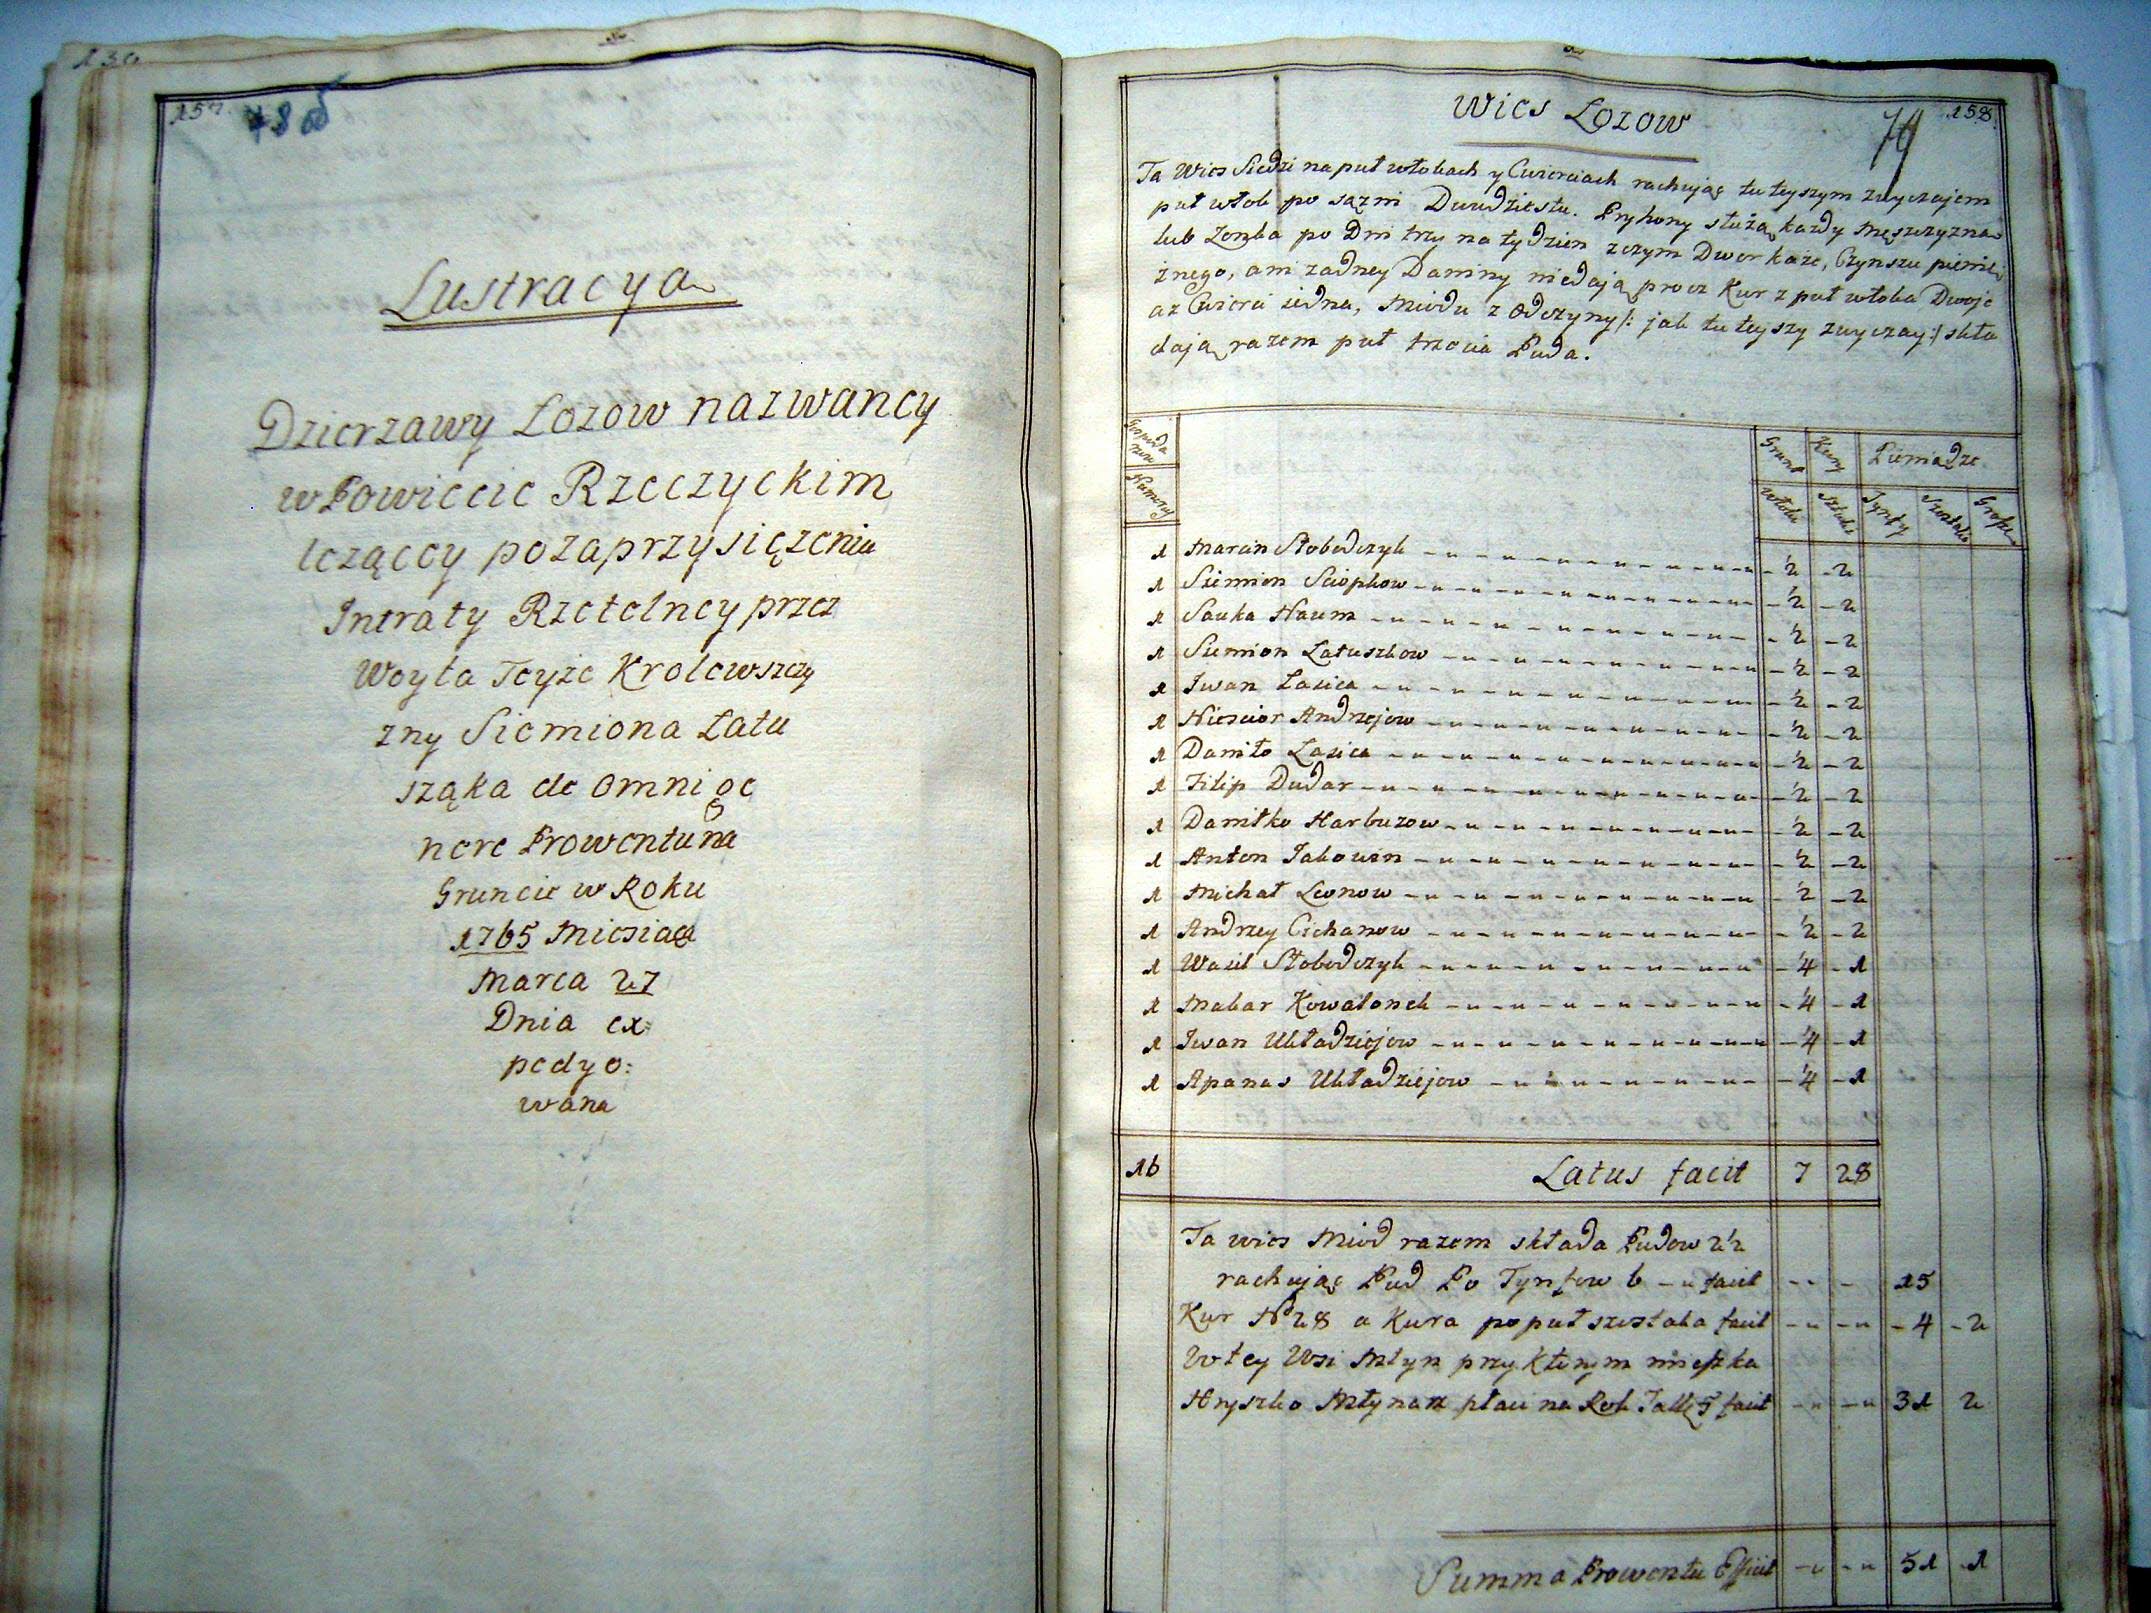 130
157.
78 об
Lustracya
Dzierzawy Łozow nazwaney
w Powiecie Rzeczyckim
leząccy po zaprzysięzeniu
Intraty Rzetelney przez
Woyta Teyze Krolewszczy
zny Siemiona Łatu
sząka de omni ge
nere Prowentu na
Gruncie w Roku
1765 Miesiąca
Marca 27
Dnia ex:
pedyo:
wana
158.
79
Wies Łozow
Ta Wies Siedzi na puł włokach y Cwierciach rachując tuteyszym zwyczajem
puł włok po sązni Dwudziestu. Pryhony służą, kazdy Męszczyzna
lub Zonka po Dni trzy na tydzien z czym Dwor kaze, Czynszu pienię
żnego, ani zadney Daniny niedają procz Kur z puł włoka Dwoje
a z Cwierci iedna, Miodu z Odczyny /: jak tuteyszy zwyczay :/ skła
dają razem puł trzecia Puda.
Gospoda
rze
Numery
Grunt
Kury
Pieniądze
Włoki
Sztuki
Tynfy
Szostaki
Grosze
1 Marcin Słobodczyk - '2 - 2
1 Siemion Sciopkow - '2 - 2
1 Sauka Naum - '2 - 2
1 Siemion Łatuszkow - '2 - 2
1 Iwan Łasica - '2 - 2
1 Niescior Andrzejow - '2 - 2
1 Daniło Łasica - '2 - 2
1 Filip Dudar - '2 - 2
1 Daniłko Harbuzow - '2 - 2
1 Anton Jakowin - '2 - 2
1 Michał Leonow - '2 - 2
1 Andrzey Cichanow - '2 - 2
1 Wasil Słobodczyk - '4 - 1
1 Makar Kowalonek - '4 - 1
1 Iwan Układziejow - '4 - 1
1 Apanas Układziejow - '4 - 1
16 Latus facit 7 28
Ta wies Miod razem składa Pudow 2'2
rachując Pud Po Tynfow 6 - facit 15
Kur No 28 a Kura po puł szostaka facit - 4 - 2
W tey Wsi Młyn przy Ktorym mieszka
Hryszko Młynarz płaci na Rok Tall 5 facit 31 2
Summa Prowentu Efficit 51 1